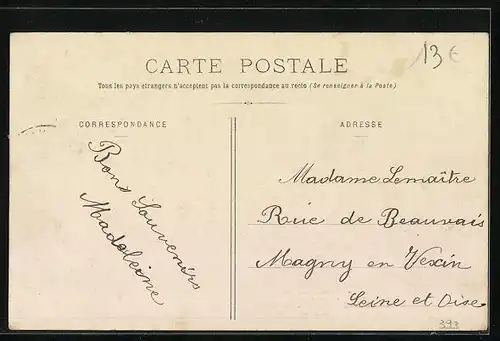 13€
CARTE POSTALE
Tous les pays étrangers n'acceptent pas la correspondance au recto (Se renseigner à la Poste)
CORRESPONDANCE
ADRESSE
Bons Souvenirs
Madeleine
Madame Lemaître
Rue de Beauvais
Magny en Vexin
Seine et Oise.
393